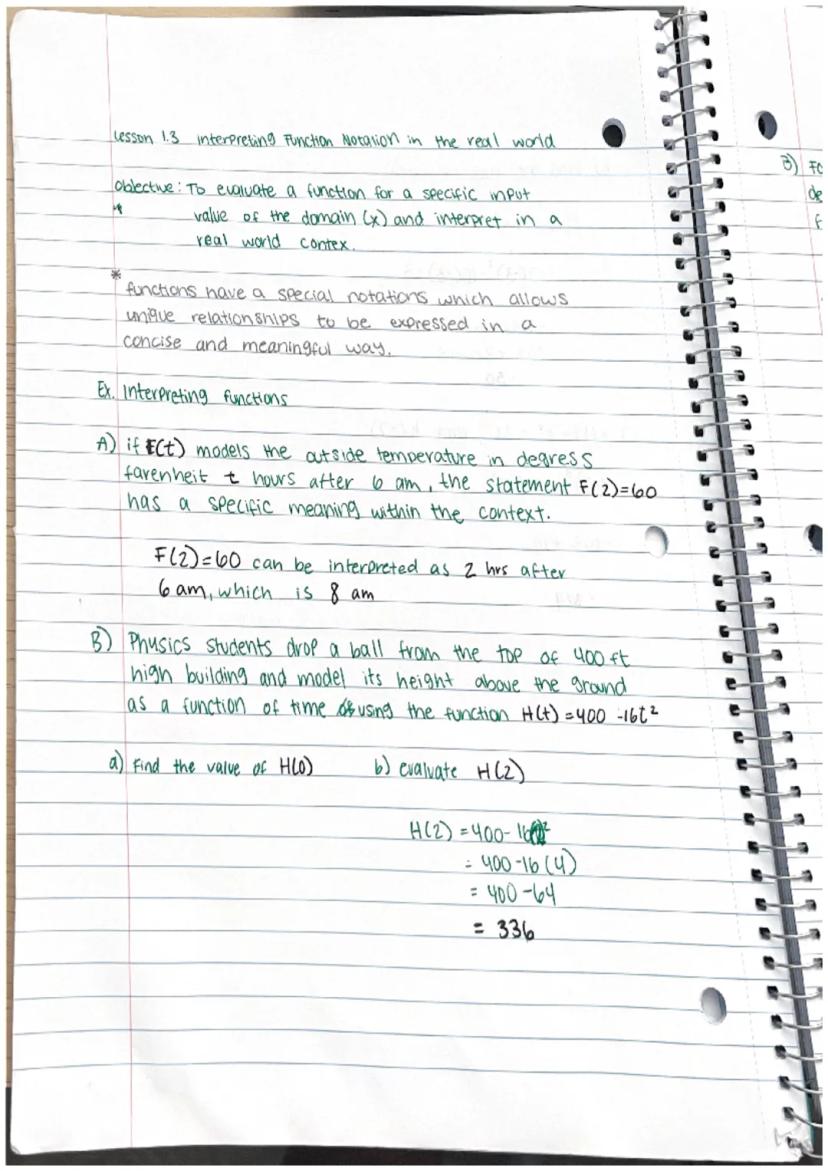 Lesson 1.3 Interpreting Function Notation in the real world
Objective: To evaluate a function for a specific input
value of the domain (x) and interpret in a
real world contex.
* functions have a special notations which allows
unique relationships to be expressed in a
concise and meaningful way.
Ex. Interpreting functions
A) if F(t) models the outside temperature in degress
farenheit t hours after 6 am, the statement F(2)=60
has a specific meaning within the context.
F(2)=60 can be interpreted as 2 hrs after
6 am, which is 8 am
B) Physics students drop a ball from the top of 400 ft
high building and model its height above the ground
as a function of time using the function H(t) = 400 -16t²
a) Find the value of H(0) b) evaluate H(2)
H(2) = 400-16
= 400-16 (4)
= 400-64
= 336
3) Fo
de
f